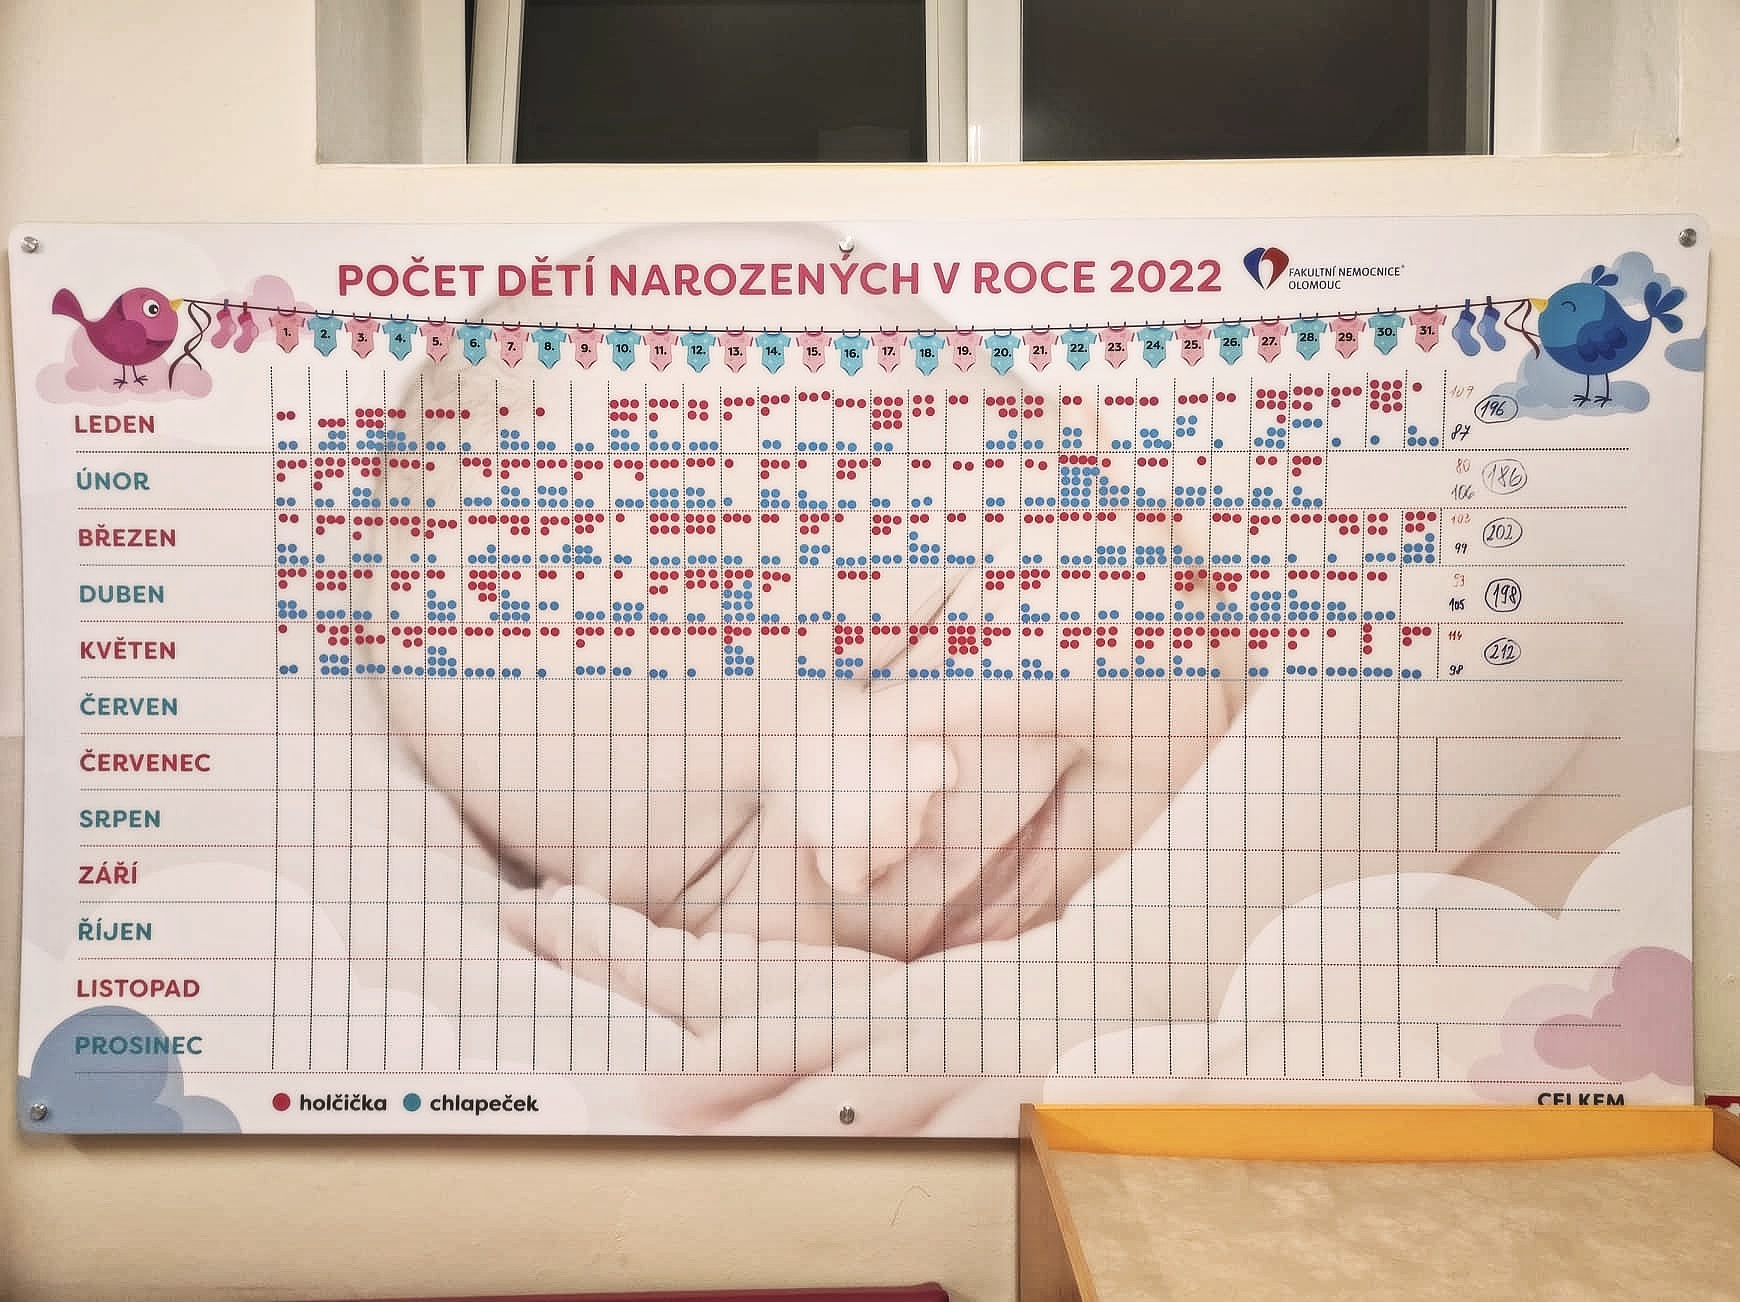 POČET DĚTÍ NAROZENÝCH V ROCE 2022
FAKULTNÍ NEMOCNICE®
OLOMOUC
1. 2. 3. 4. 5. 6. 7. 8. 9. 10. 11. 12. 13. 14. 15. 16. 17. 18. 19. 20. 21. 22. 23. 24. 25. 26. 27. 28. 29. 30. 31.
LEDEN 109 196
87
ÚNOR 80 186
106
BŘEZEN 103 202
99
DUBEN 93 198
105
KVĚTEN 114 212
98
ČERVEN
ČERVENEC
SRPEN
ZÁŘÍ
ŘÍJEN
LISTOPAD
PROSINEC
holčička chlapeček
CELKEM